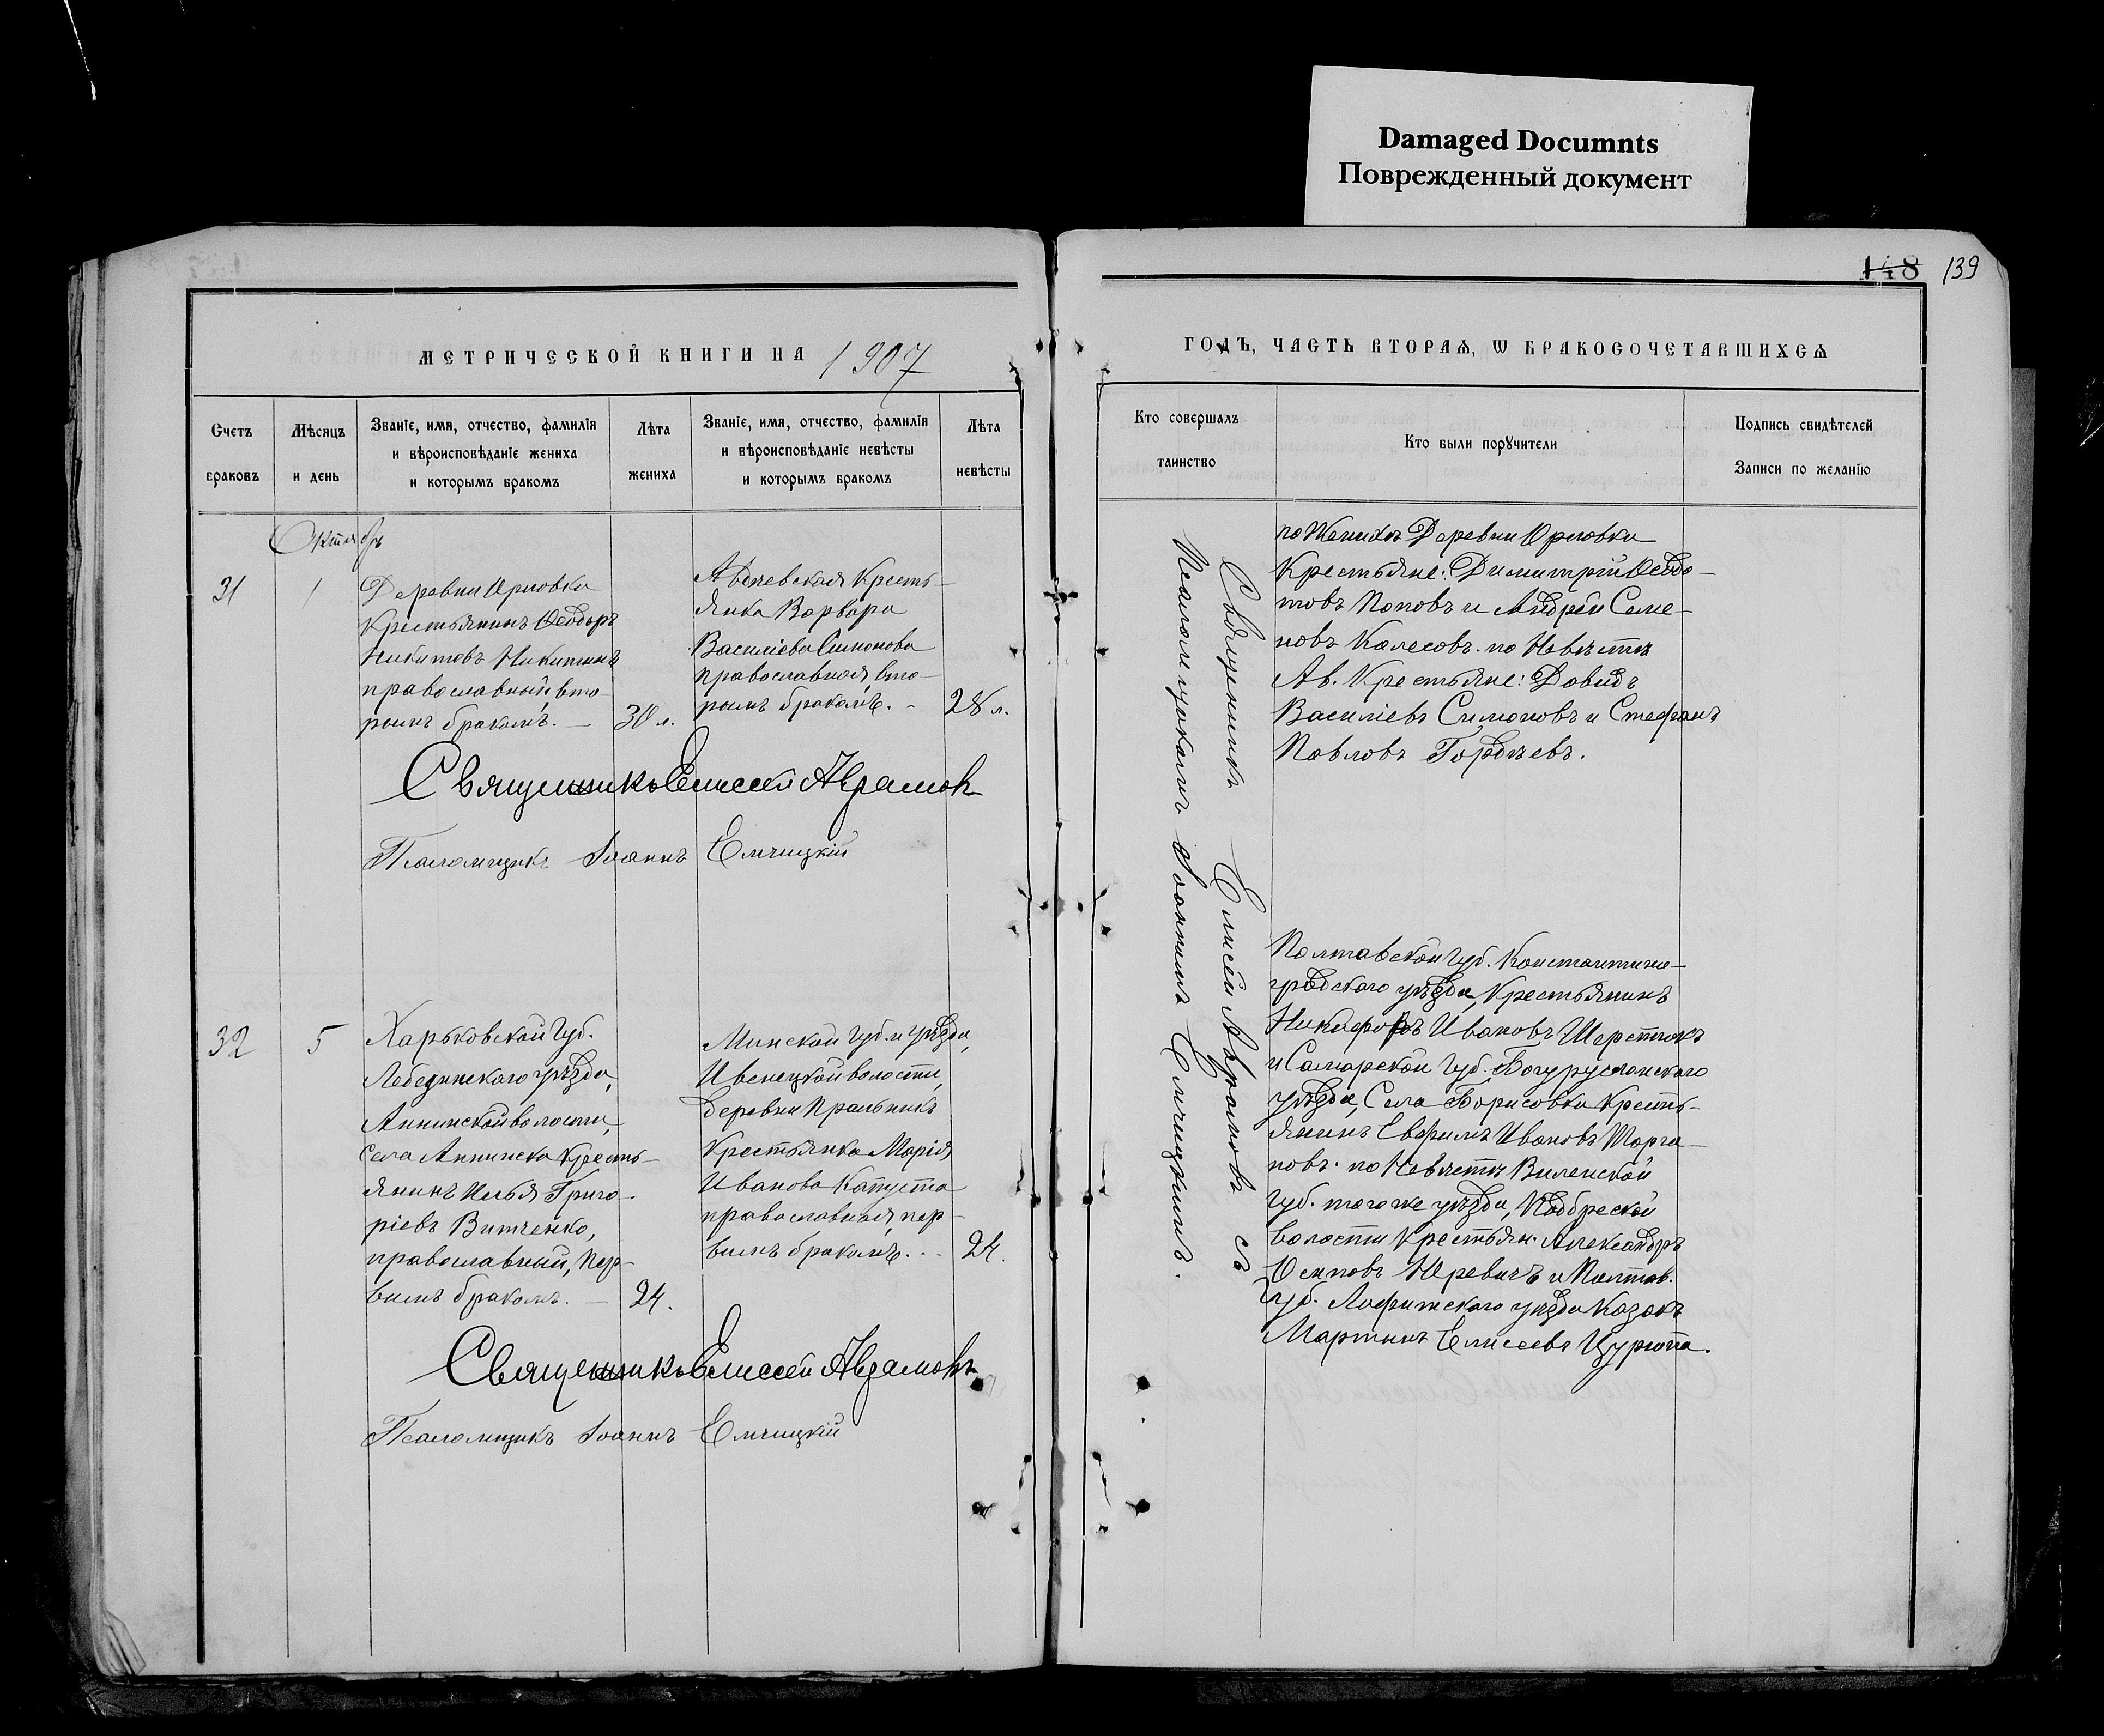 Damaged Documnts
Поврежденный документ
148 139
МЕТРИЧЕСКОЙ КНИГИ НА 1907
Счетъ браковъ
Мѣсяцъ и день
Званіе, имя, отчество, фамилія
и вѣроисповѣданіе жениха
и которымъ бракомъ
Лѣта жениха
Званіе, имя, отчество, фамилія
и вѣроисповѣданіе невѣсты
и которымъ бракомъ
Лѣта невѣсты
Октябрь
31
1
Деревни Орловки
Крестьянинъ Ѳеодоръ
Никитовъ Никитинъ
православный, вто-
рымъ бракомъ. —
30 л.
Крестъ-
янка Варвара
Василіева Симонова
православная, вто-
рымъ бракомъ. -
28 л.
Священникъ Елисей Авраамовъ
Псаломщикъ Іоаннъ Емчицкій
32
5
Харьковской Губ.
Лебединскаго уѣзда,
Аннинской волости,
Села Аннинска Кресть-
янинъ Илья Григо-
ріевъ Витченко,
православный, пер-
вымъ бракомъ. —
24.
Минской Губ. и уѣзда,
Ивенецкой волости,
деревни
Крестьянка Марія
Иванова Капуста
православная, пер-
вымъ бракомъ. . .
24.
Священникъ Елисей Авраамовъ
Псаломщикъ Іоаннъ Емчицкій
ГОДЪ, ЧАСТЬ ВТОРАѦ, Ѡ БРАКОСОЧЕТАВШИХСѦ
Кто совершалъ
таинство
Кто были порꙋчители
Подпись свидѣтелей
Записи по желанію
Священникъ Елисей Авраамовъ съ
Псаломщикомъ Іоанномъ Емчицкимъ.
по Женихѣ Деревни Орловки
Крестьяне: Димитрій Ѳеодо-
товъ Поповъ и Андрей Семе-
новъ Калесовъ. по Невѣстѣ
Ав. Крестьяне: Давидъ
Василіевъ Симоновъ и Стефанъ
Павловъ Гордѣевъ.
Полтавской Губ. Константино-
градскаго уѣзда, Крестьянинъ
Никифоръ Ивановъ
и Самарской Губ. Богурусланскаго
уѣзда, Села Борисовки Кресть-
янинъ Евфимъ Ивановъ
по Невѣстѣ Виленской
Губ. того же уѣзда,
волости Крестьян. Александръ
Осиповъ Юревичъ и Полтав.
Губ. уѣзда Козакъ
Мартинъ Елисеевъ Цурюпа.